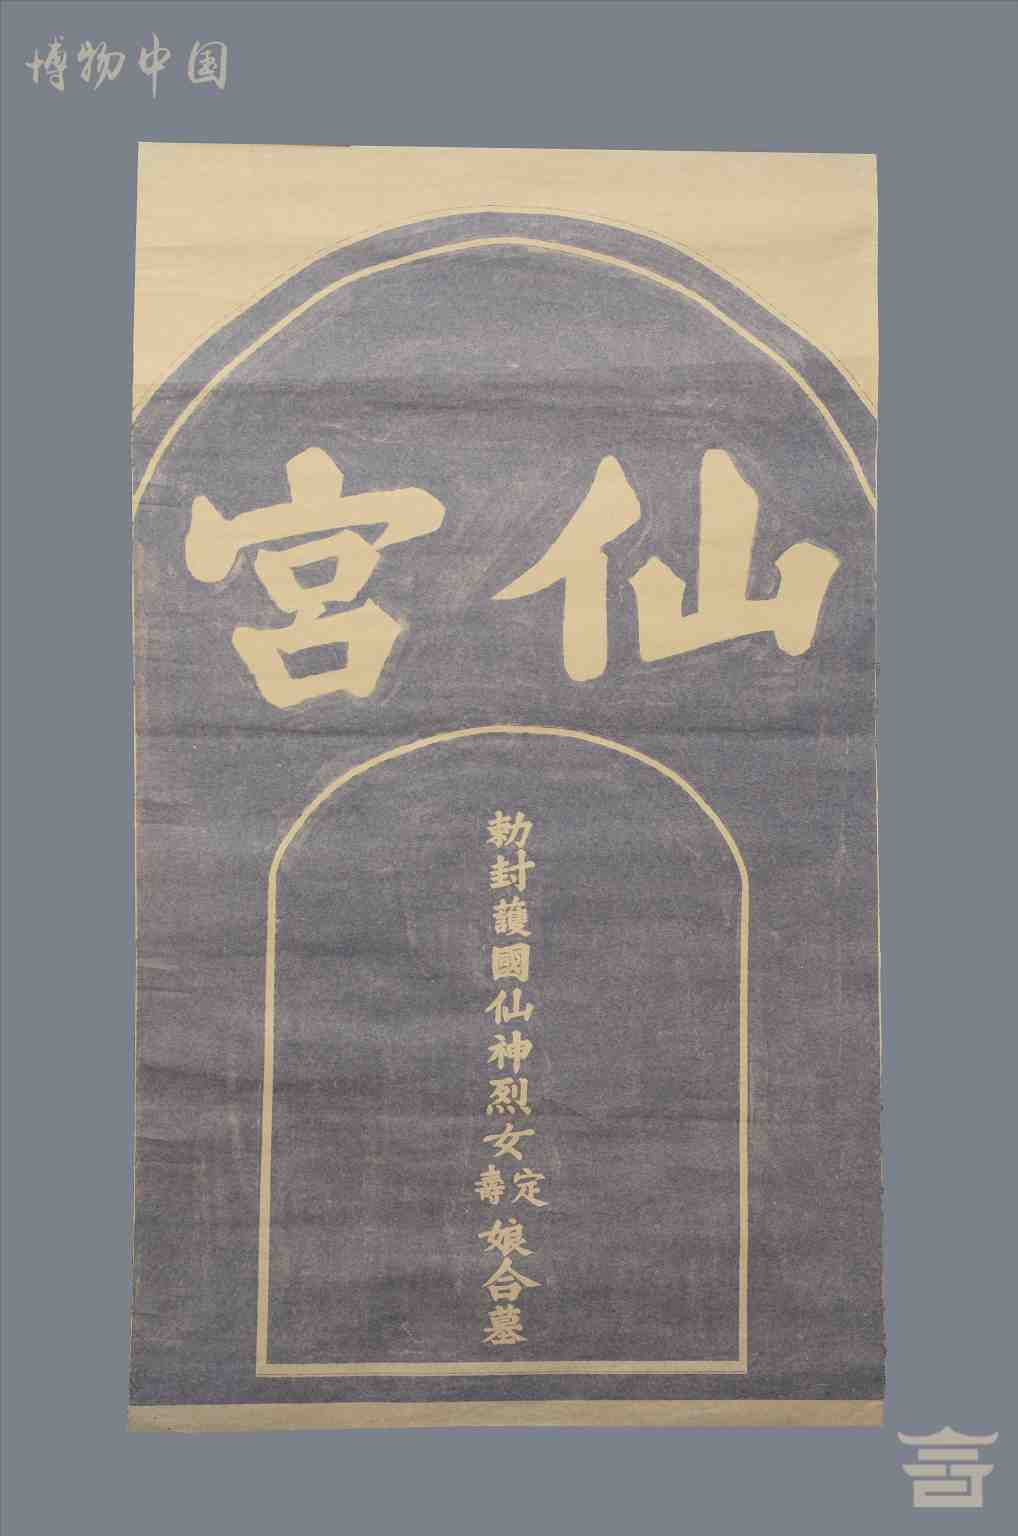 博物中国
仙宮
勅封護國仙神烈女定壽娘合墓